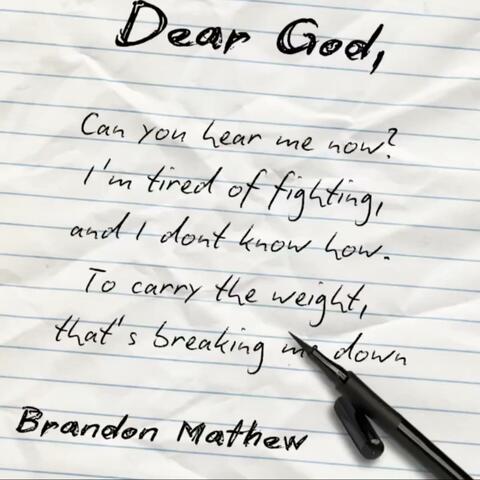 Dear God,
Can you hear me now?
I'm tired of fighting,
and I dont know how.
To carry the weight,
that's breaking me down
Brandon Mathew